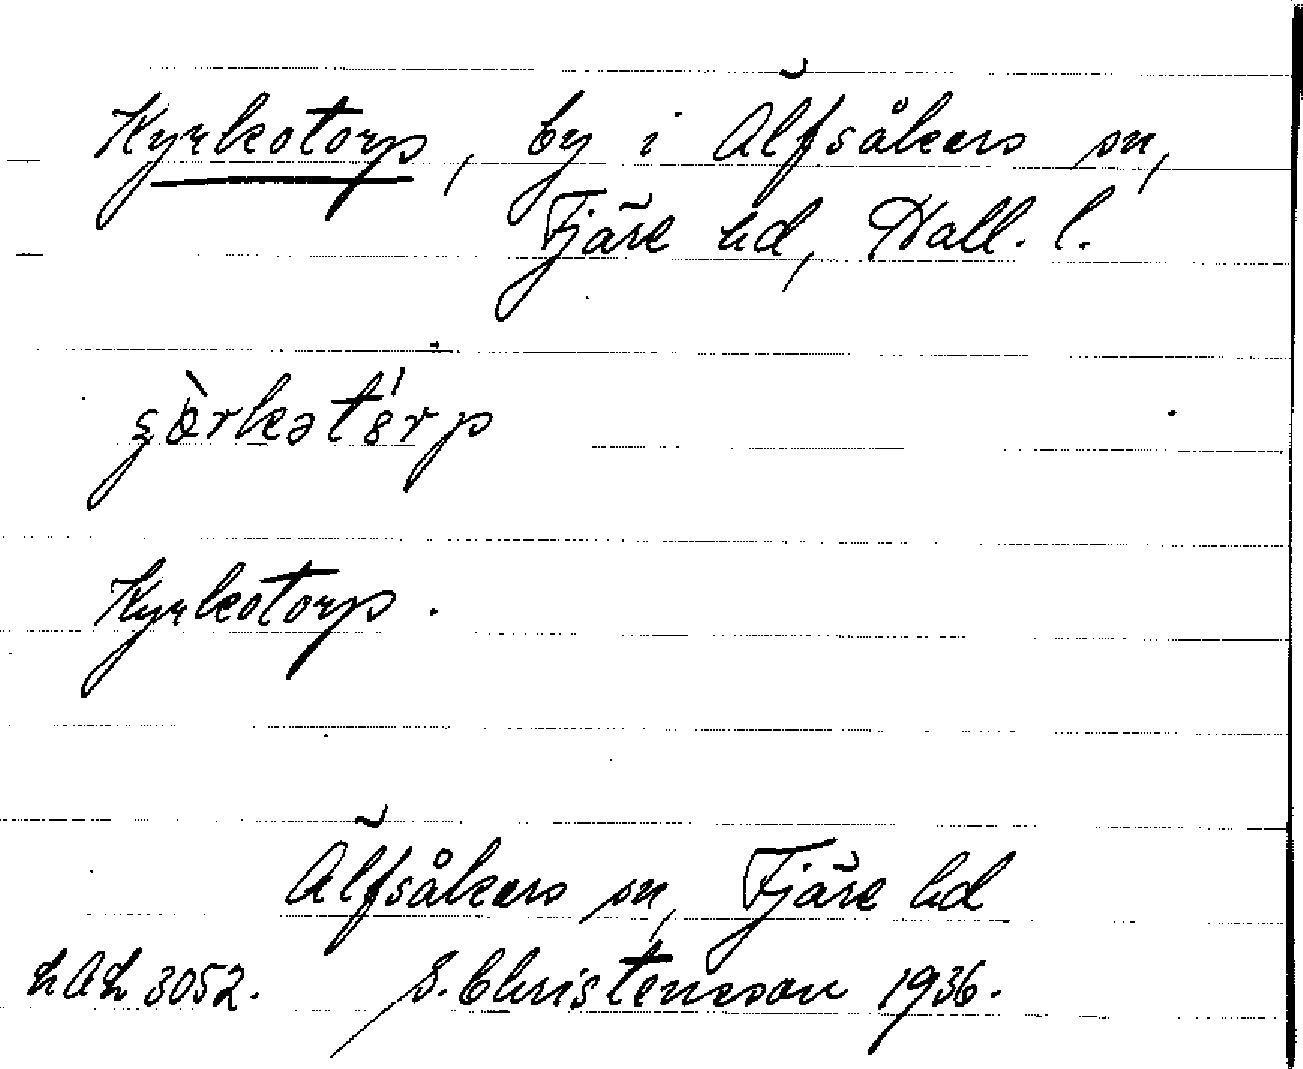 Kyrkotorp, by i Älfsåkers sn,
Fjäre hd, Hall. l.
Kyrkotorp.
Älfsåkers sn, Fjäre hd
3052. S. Christensson 1936.